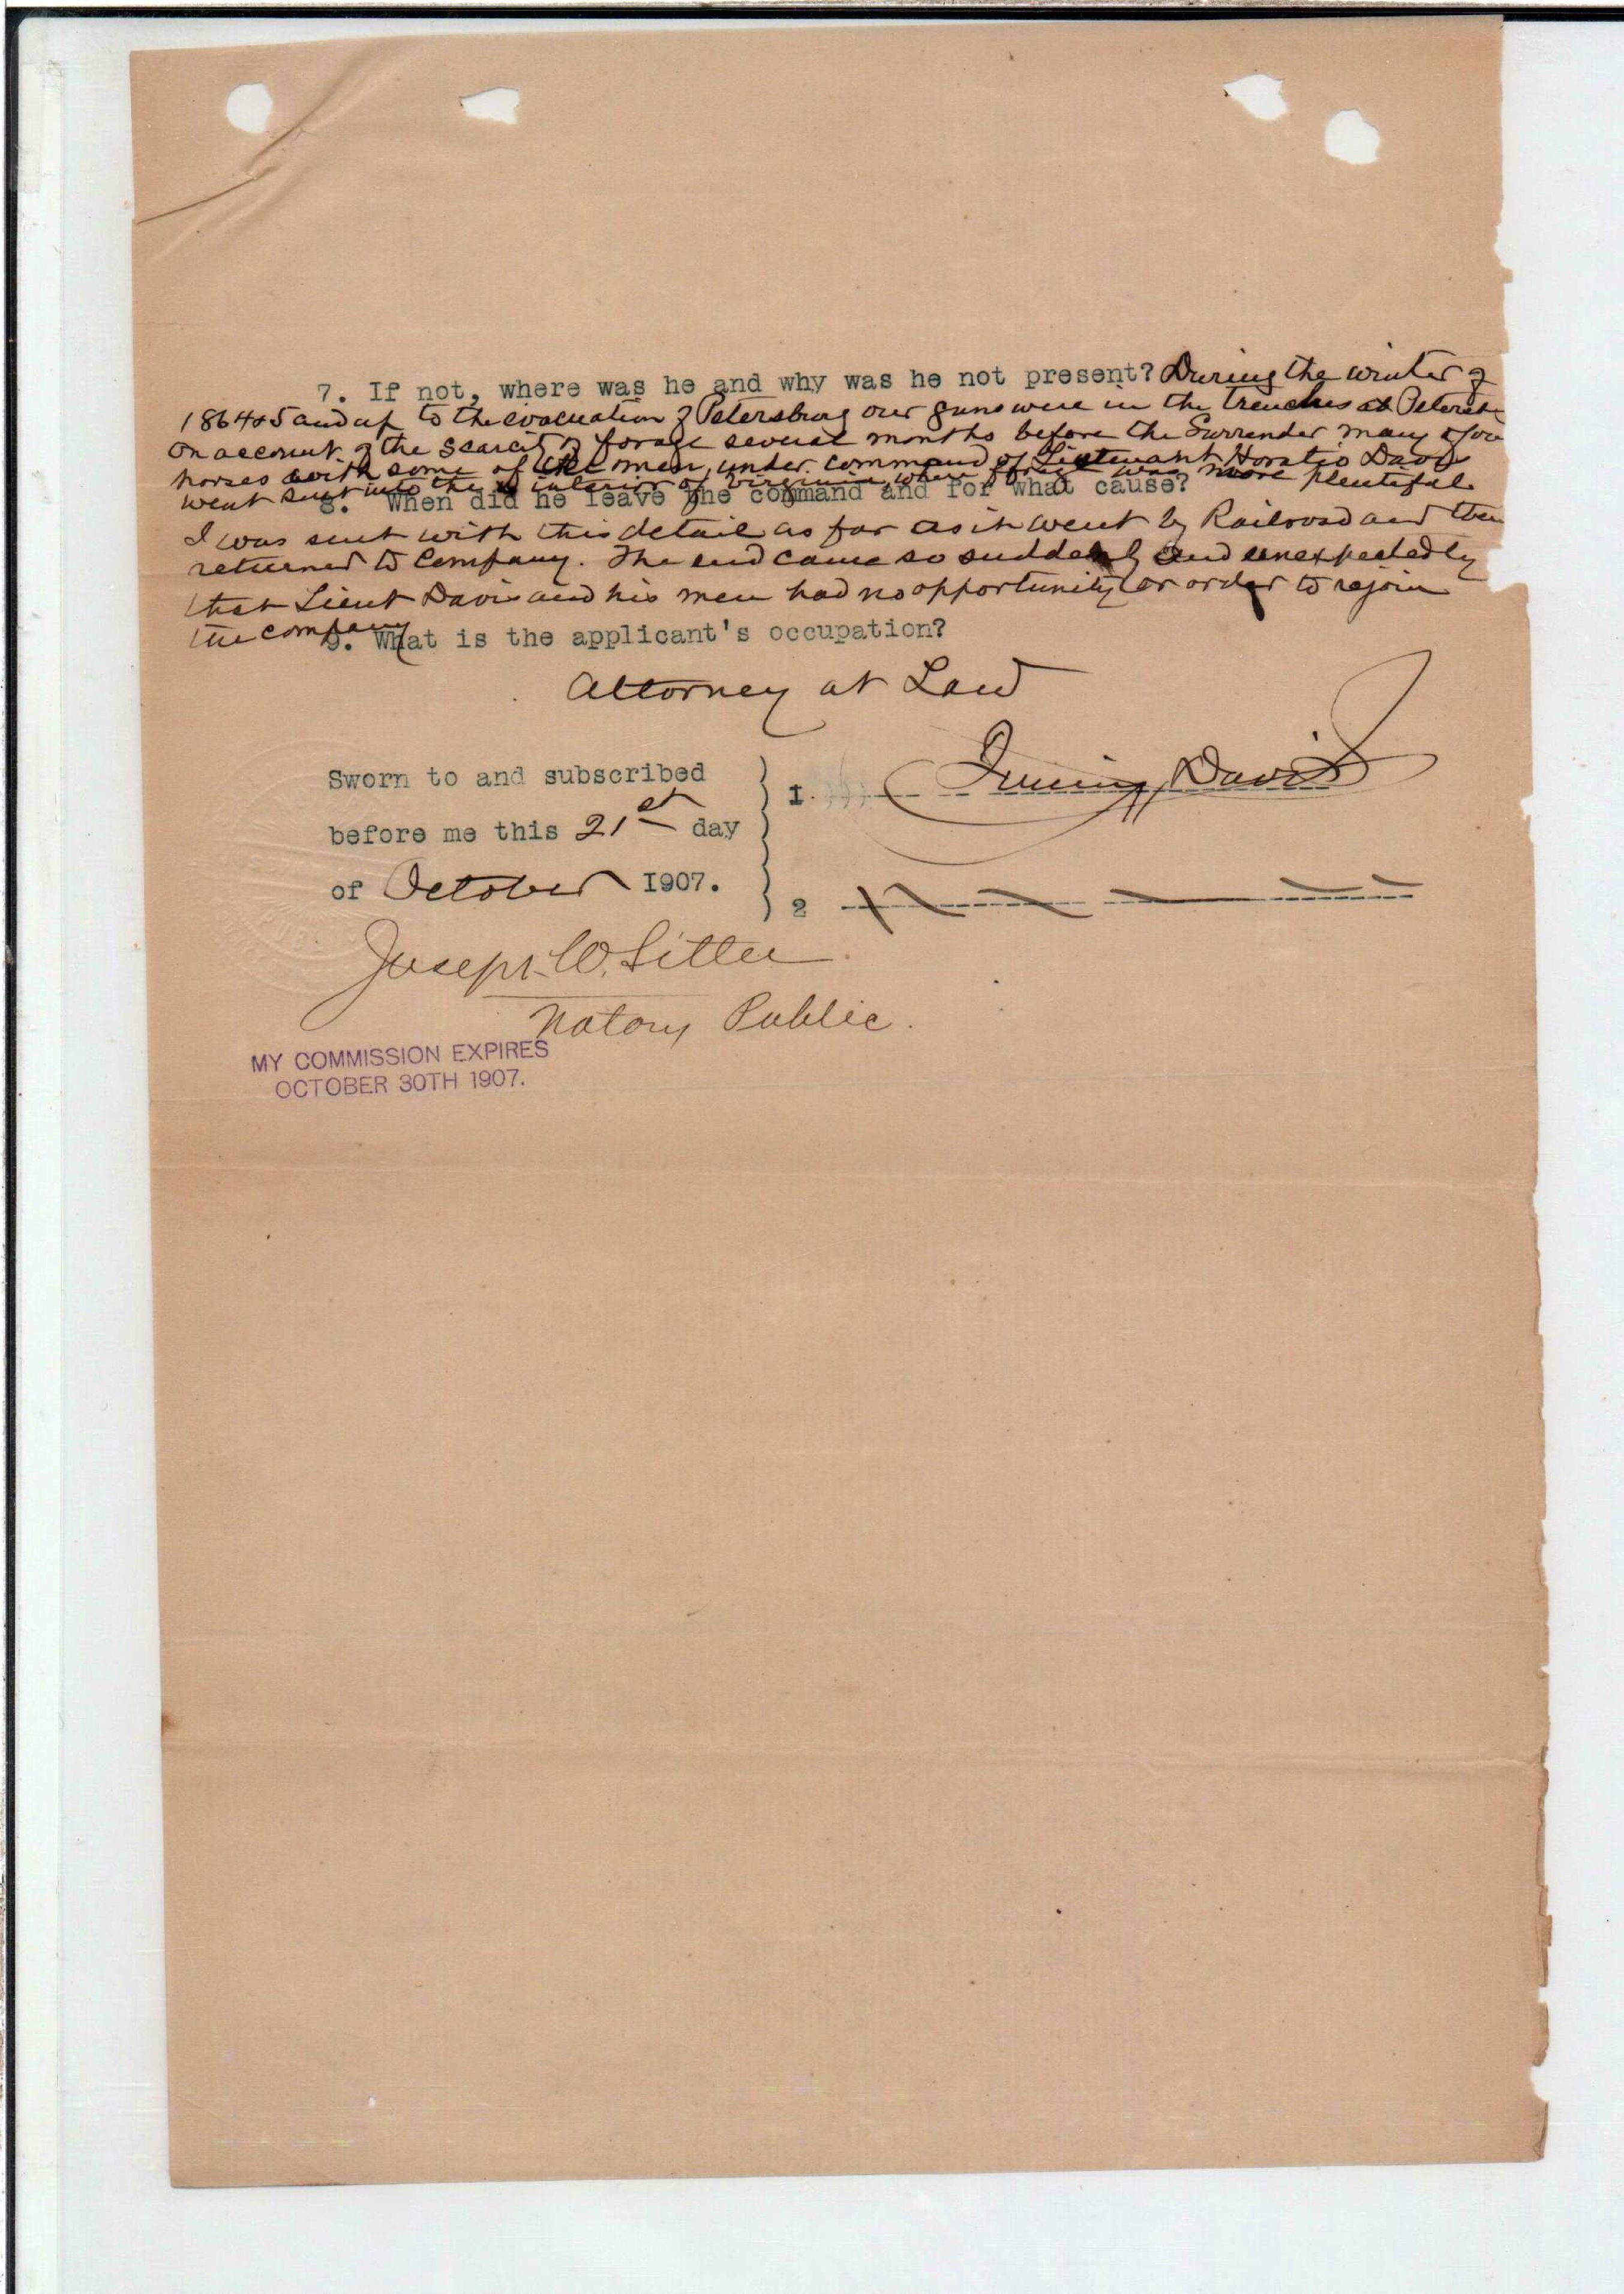 7. If not, where was he and why was he not present? During the winter of
1864&5 and up to the evacuation of Petersburg our guns were in the trenches at
On account of the scarcity of forage several months before the Surrender many of our
horses with some of the men, under command of Lieutenant Horatio Davis
went into the interior of Virginia, where forage was more plentiful.
8. When did he leave the command and for what cause?
I was sent with this detail as far as it went by Railroad and then
returned to Company. The end came so suddenly and unexpectedly
that Lieut Davis and his men had no opportunity or order to rejoin
the company
9. What is the applicant's occupation?
Attorney at Law
Sworn to and subscribed
before me this 21st day
of October 1907.
1. Davis
2
Joseph W.
Notary Public.
MY COMMISSION EXPIRES
OCTOBER 30TH 1907.